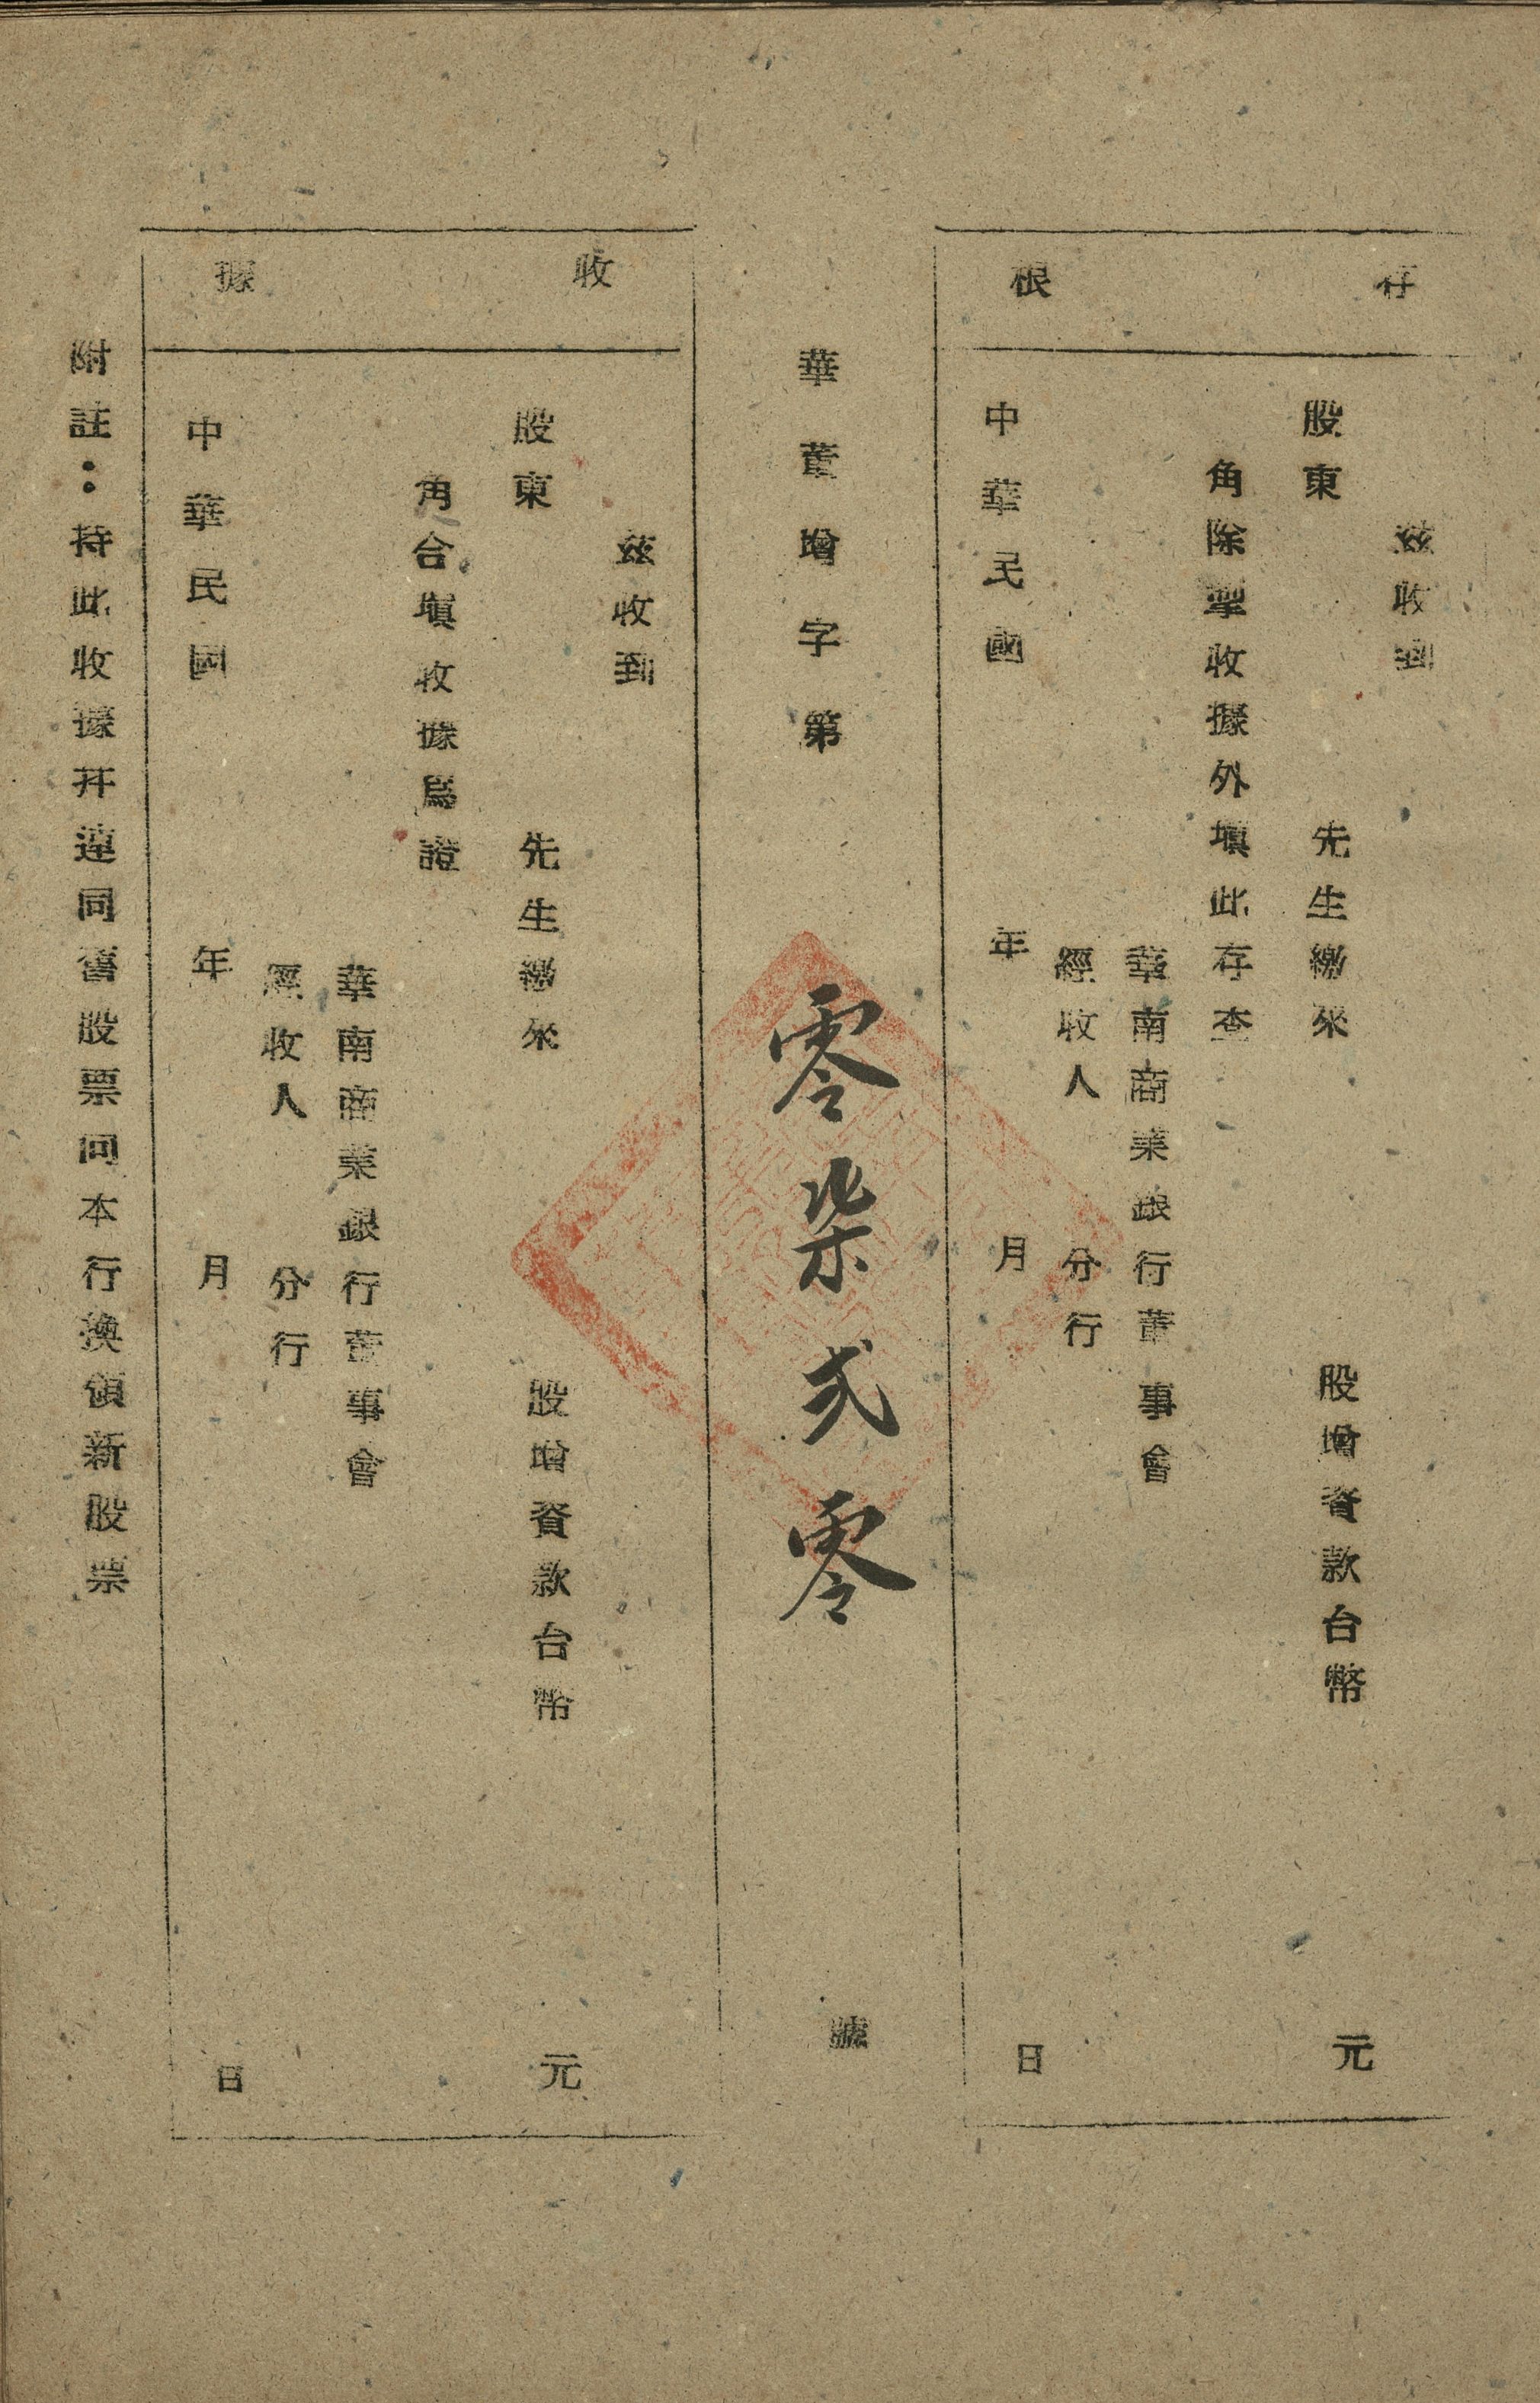 存根
茲收到
股東　先生繳來　股增資款台幣　元
角除掣收據外塡此存查
華南商業銀行董事會
經收人　分行
中華民國　年　月　日
華董增字第零柒貳零號
收據
茲收到
股東　先生繳來　股增資款台幣　元
角合塡收據爲證
華南商業銀行董事會
經收人　分行
中華民國　年　月　日
附註：持此收據幷連同舊股票向本行換領新股票